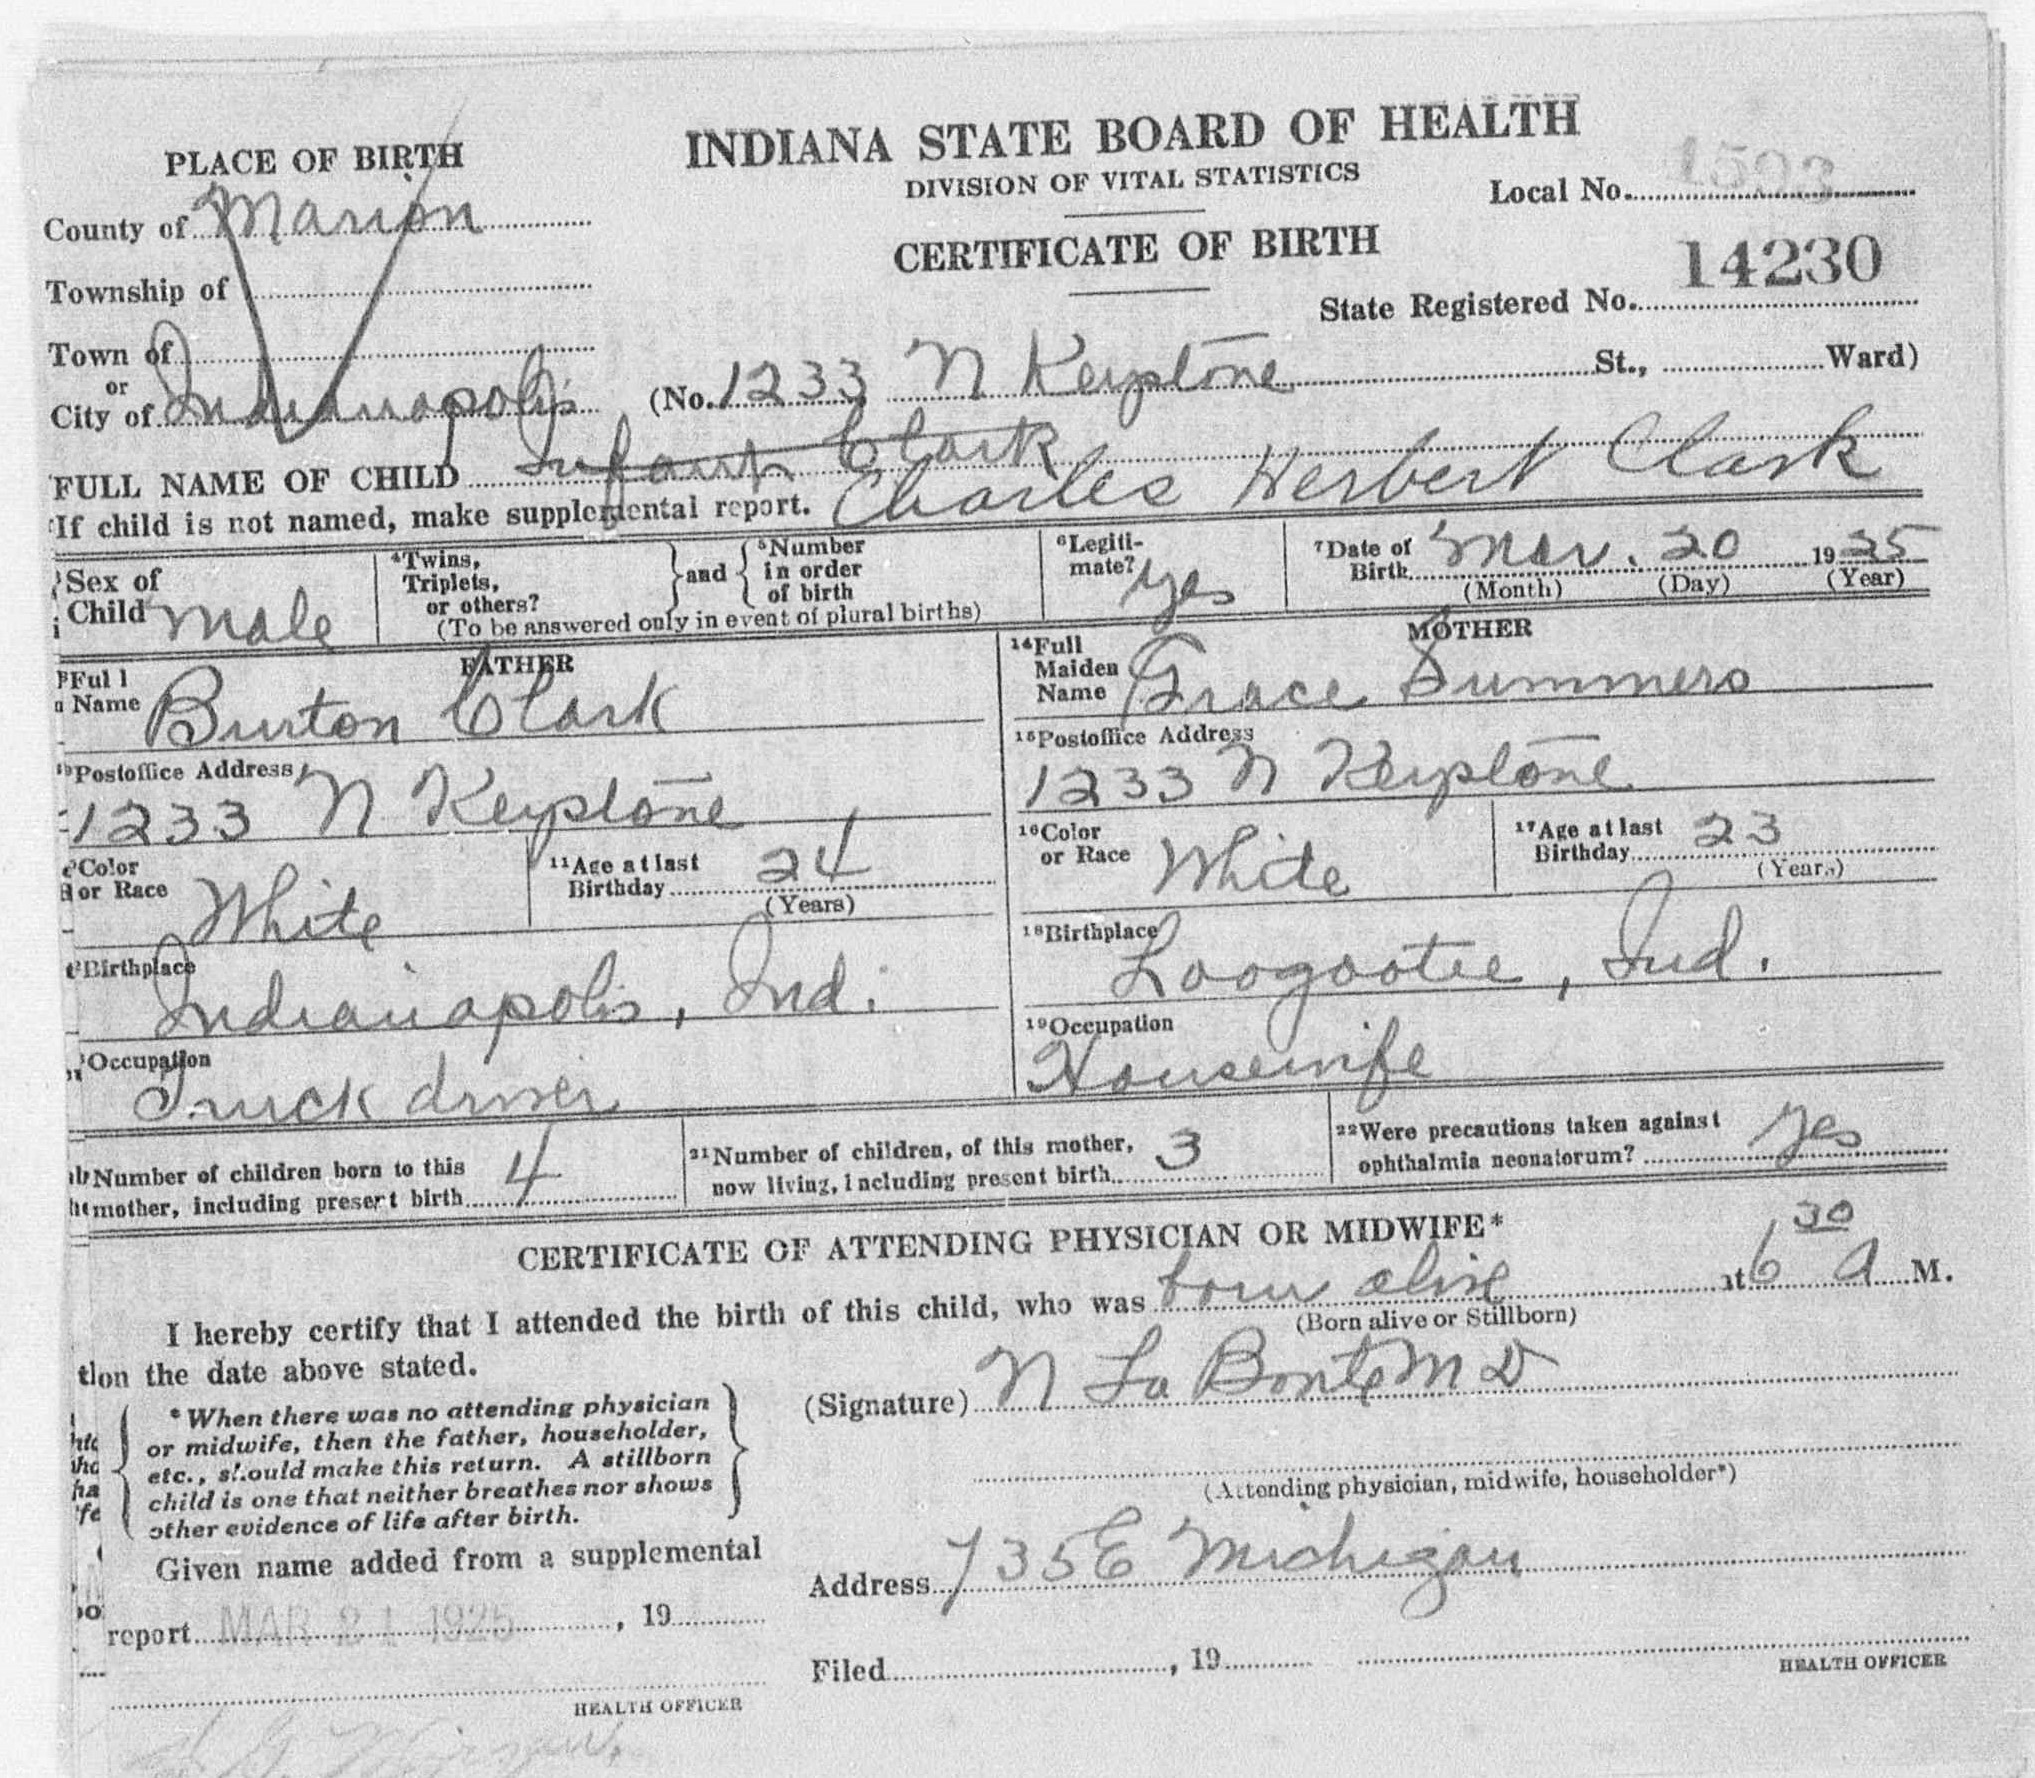 INDIANA STATE BOARD OF HEALTH
DIVISION OF VITAL STATISTICS
CERTIFICATE OF BIRTH
Local No. 1593
14230
State Registered No.
PLACE OF BIRTH
County of Marion
Township of
Town of
or
City of Indianapolis (No. 1233 N Keystone St., Ward)
FULL NAME OF CHILD Infant Clark
If child is not named, make supplemental report. Charles Herbert Clark
Sex of Child Male
4 Twins, Triplets, or others? and 5 Number in order of birth
(To be answered only in event of plural births)
6 Legitimate? yes
7 Date of Birth Mar. 20 1925
(Month) (Day) (Year)
FATHER
Full Name Burton Clark
Postoffice Address
1233 N Keystone
Color or Race White
11 Age at last Birthday 24
(Years)
Birthplace
Indianapolis, Ind.
Occupation
Truck driver
MOTHER
14 Full Maiden Name Grace Summers
15 Postoffice Address
1233 N Keystone
16 Color or Race White
17 Age at last Birthday 23
(Years)
18 Birthplace
Loogootee, Ind.
19 Occupation
Housewife
Number of children born to this mother, including present birth 4
21 Number of children, of this mother, now living, including present birth 3
22 Were precautions taken against ophthalmia neonatorum? yes
CERTIFICATE OF ATTENDING PHYSICIAN OR MIDWIFE*
I hereby certify that I attended the birth of this child, who was born alive at 6 30 A M.
(Born alive or Stillborn)
on the date above stated.
(Signature) N La Bonte M D
(Attending physician, midwife, householder*)
* When there was no attending physician
or midwife, then the father, householder,
etc., should make this return. A stillborn
child is one that neither breathes nor shows
other evidence of life after birth.
Given name added from a supplemental
report MAR 21 1925, 19
HEALTH OFFICER
Address 735 E Michigan
Filed , 19
HEALTH OFFICER